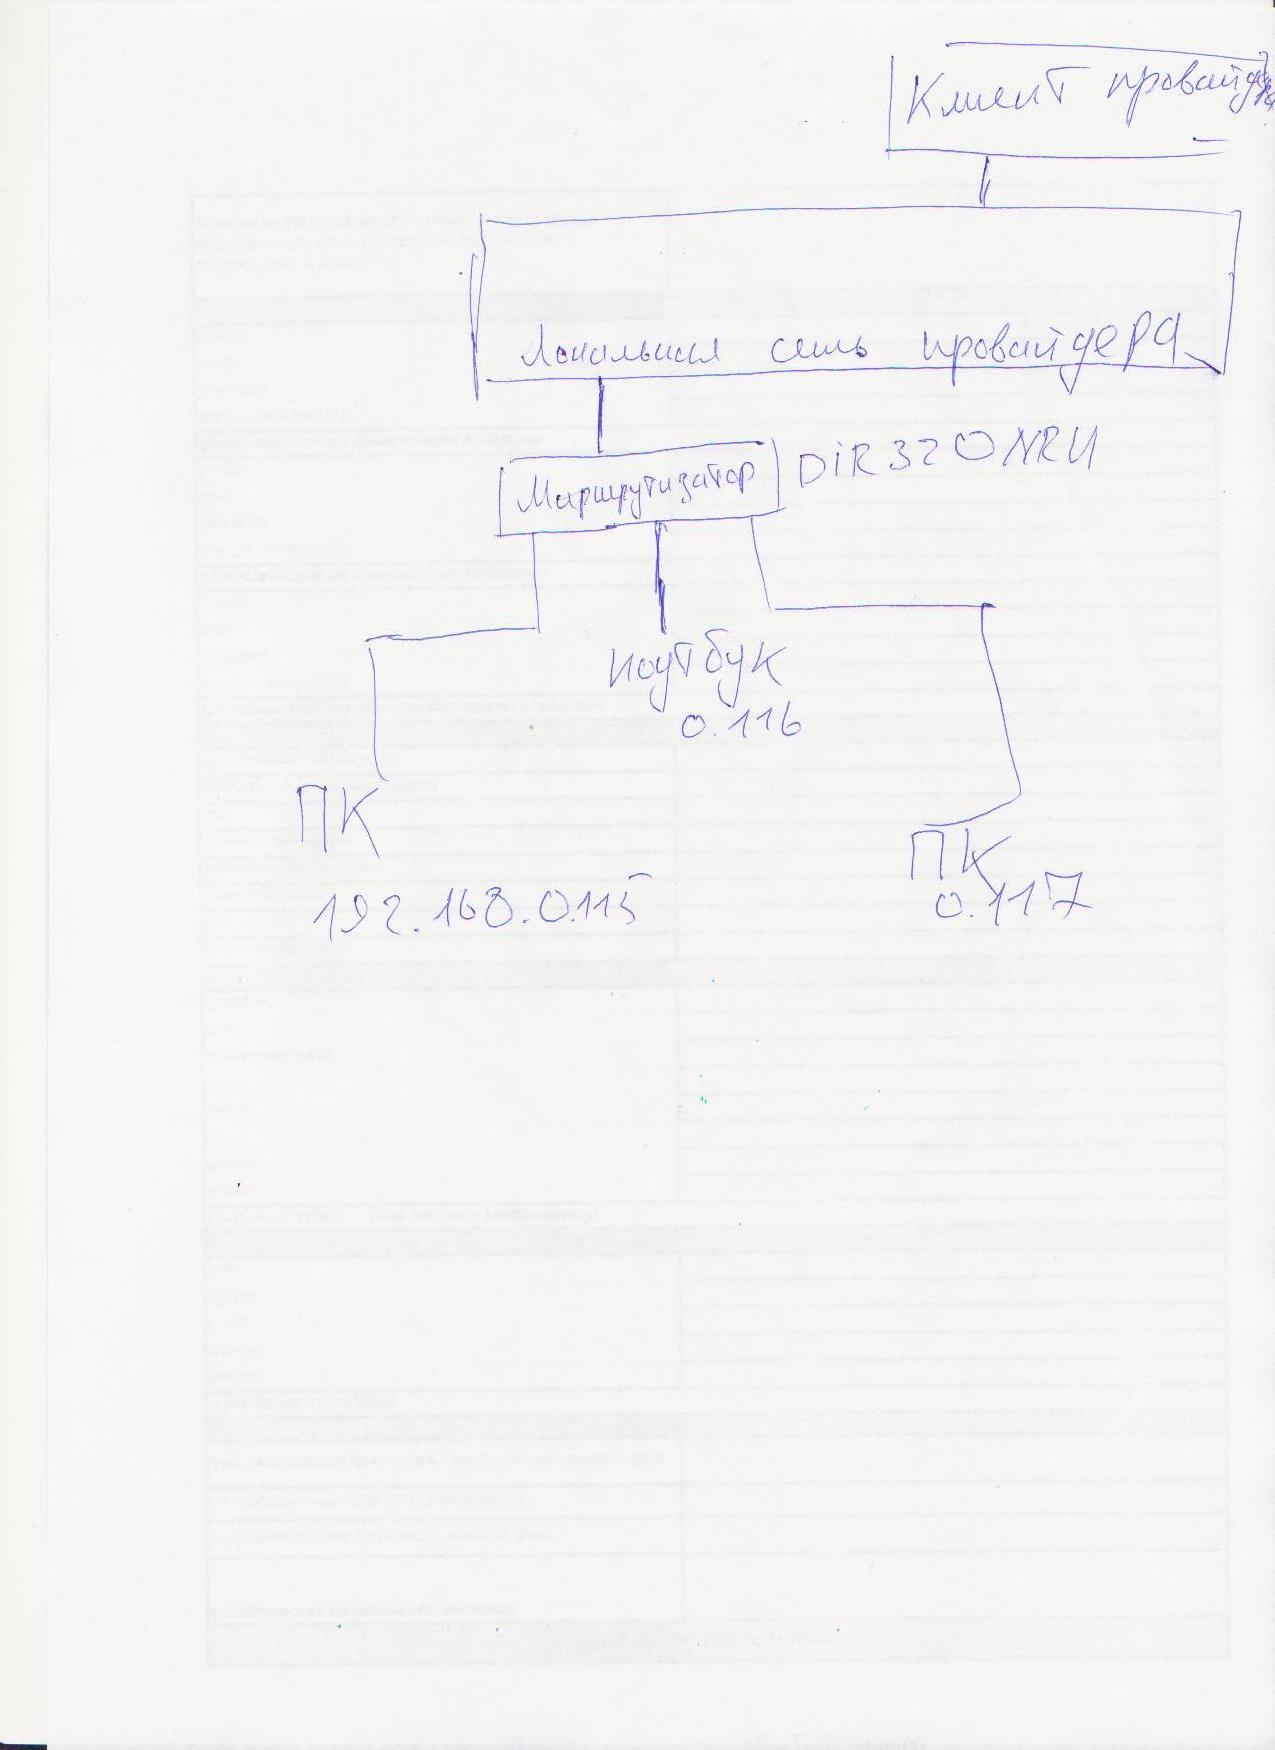 Клиент провайдера
Локальная сеть провайдера
Маршрутизатор
DIR320NRU
ноутбук
0.116
ПК
192.168.0.115
ПК
0.117